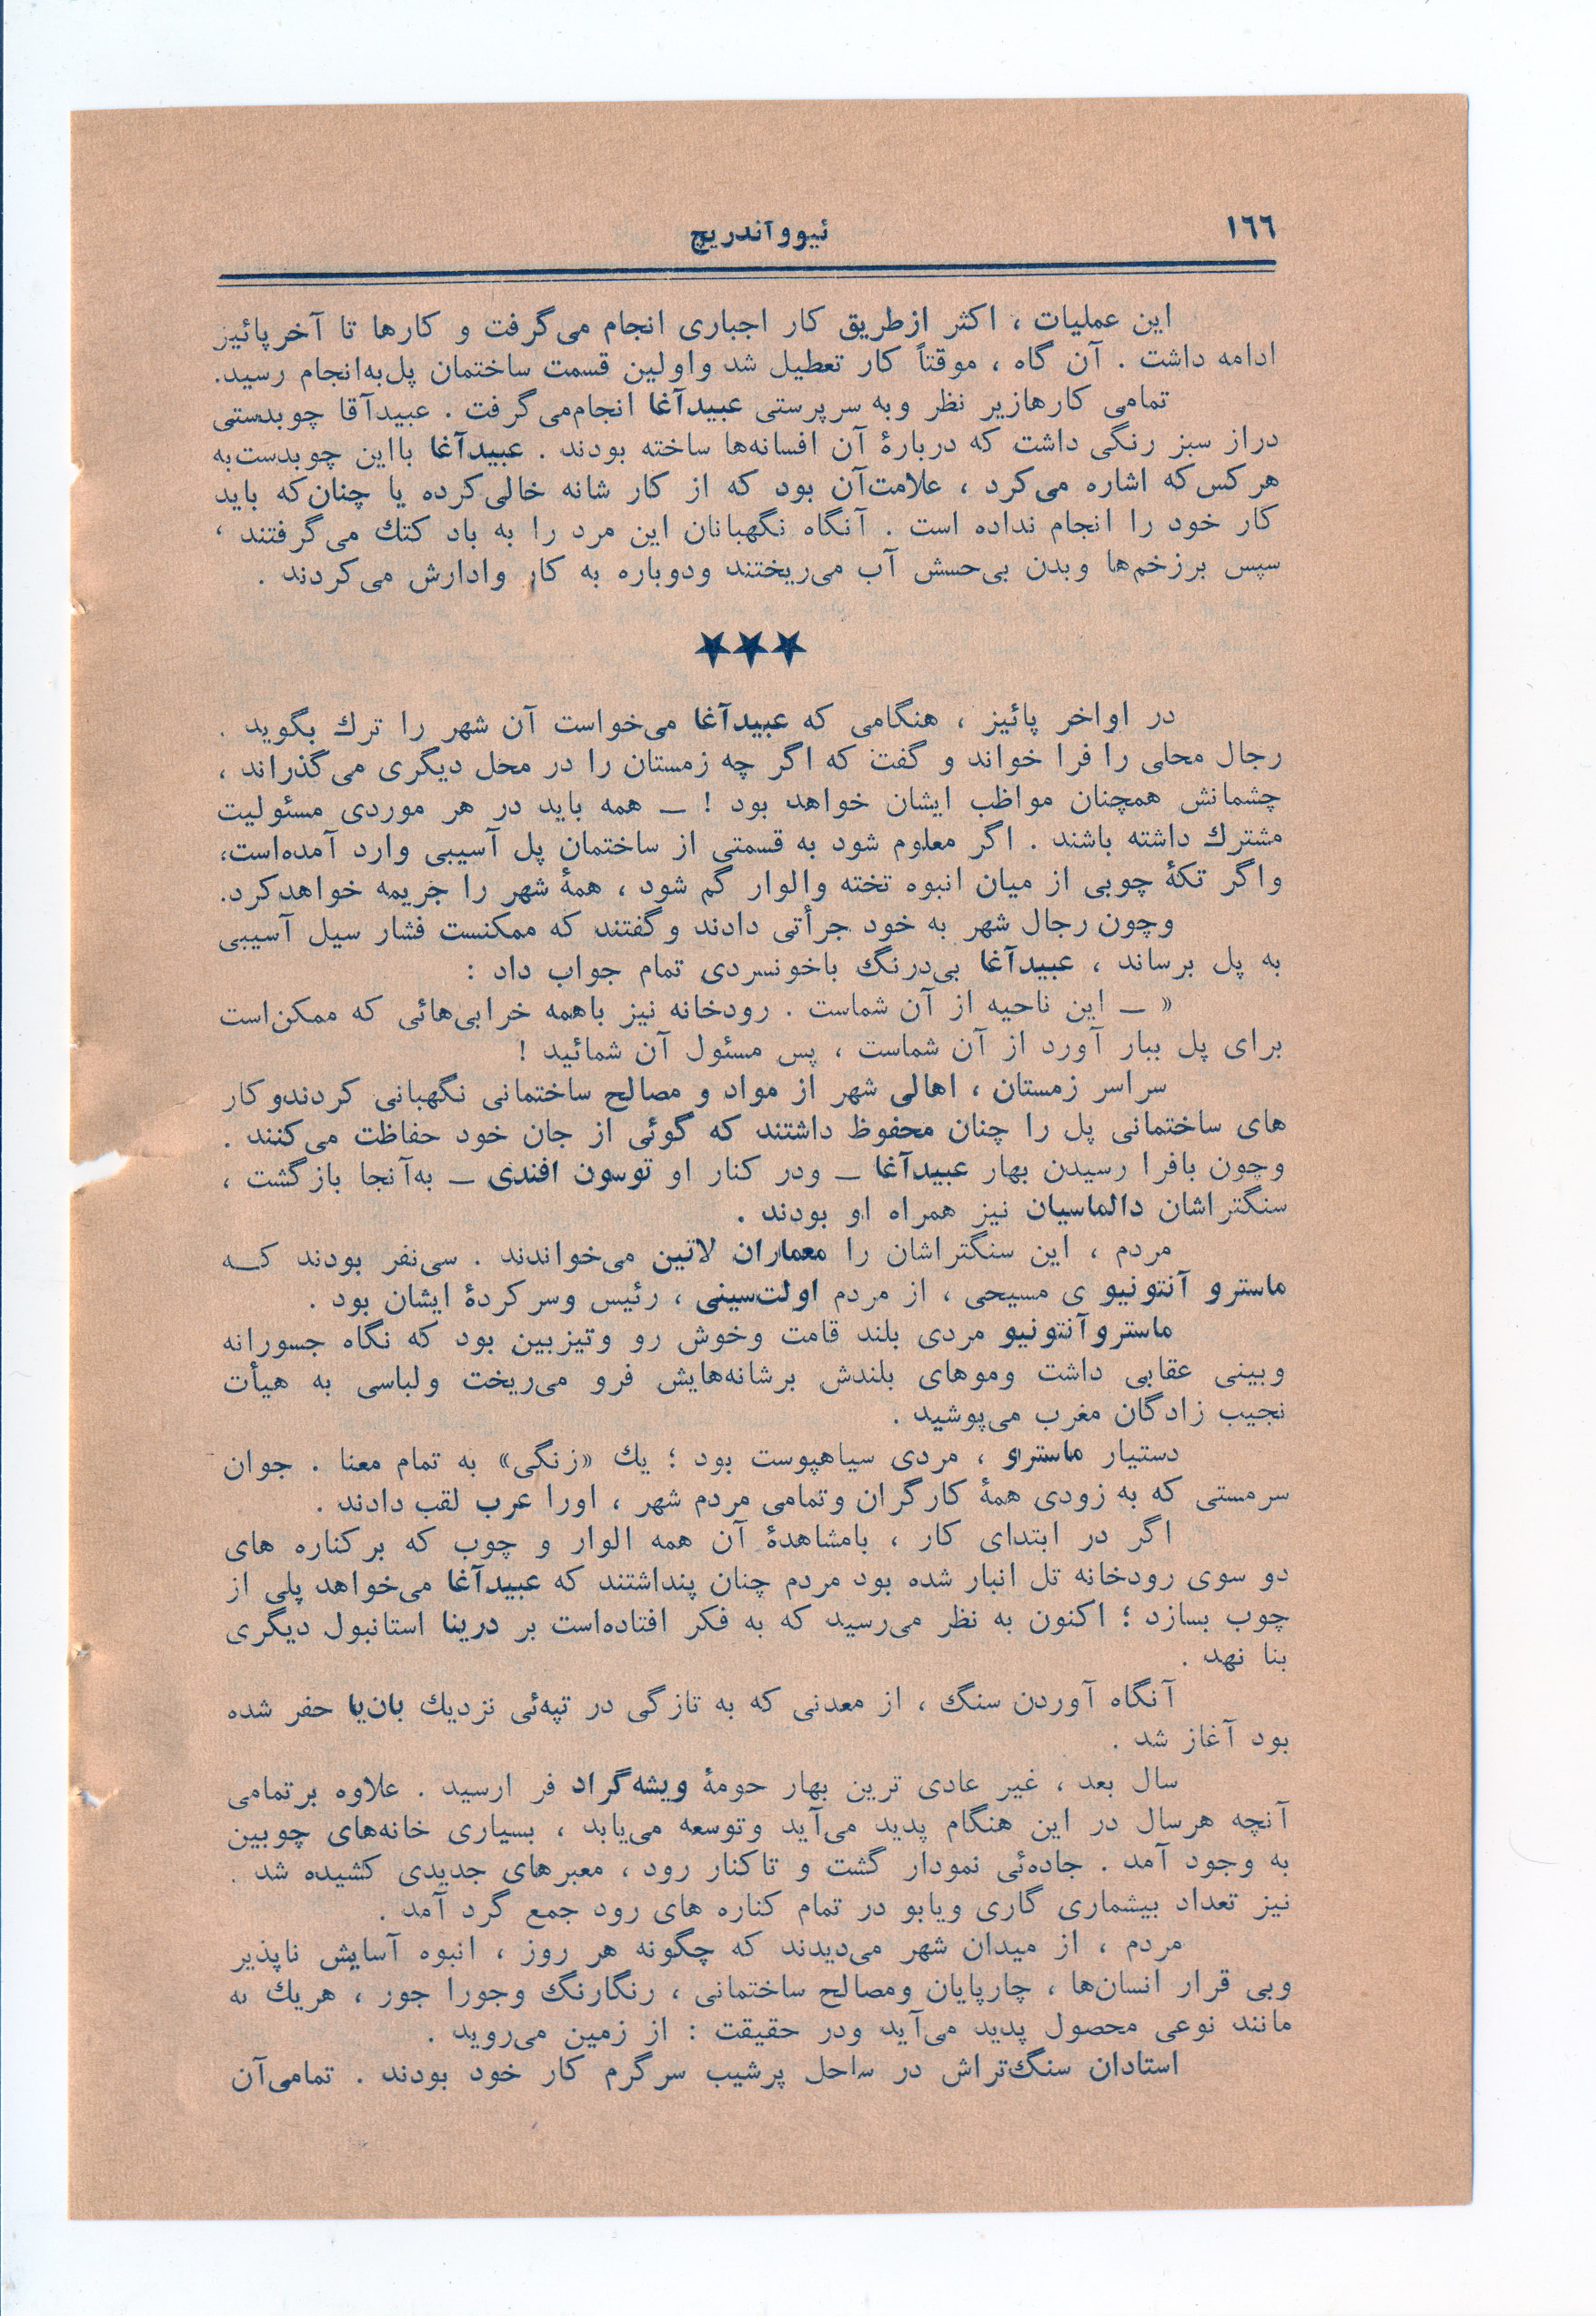 ١٦٦
ئیووآندریچ
این عملیات ، اکثر ازطریق کار اجباری انجام می‌گرفت و کارها تا آخرپائیز
ادامه داشت . آن گاه ، موقتاً کار تعطیل شد واولین قسمت ساختمان پل‌به‌انجام رسید.
تمامی کارهازیر نظر وبه سرپرستی عبیدآغا انجام‌می‌گرفت . عبیدآقا چوبدستی
دراز سبز رنگی داشت که دربارهٔ آن افسانه‌ها ساخته بودند . عبیدآغا بااین چوبدست‌به
هرکس‌که اشاره می‌کرد ، علامت‌آن بود که از کار شانه خالی‌کرده یا چنان‌که باید
کار خود را انجام نداده است . آنگاه نگهبانان این مرد را به باد کتك می‌گرفتند ،
سپس برزخم‌ها وبدن بی‌حسش آب می‌ریختند ودوباره به کار وادارش می‌کردند .
★★★
در اواخر پائیز ، هنگامی که عبیدآغا می‌خواست آن شهر را ترك بگوید .
رجال محلی را فرا خواند و گفت که اگر چه زمستان را در محل دیگری می‌گذراند ،
چشمانش همچنان مواظب ایشان خواهد بود ! — همه باید در هر موردی مسئولیت
مشترك داشته باشند . اگر معلوم شود به قسمتی از ساختمان پل آسیبی وارد آمده‌است،
واگر تکهٔ چوبی از میان انبوه تخته والوار گم شود ، همهٔ شهر را جریمه خواهدکرد.
وچون رجال شهر به خود جرأتی دادند وگفتند که ممکنست فشار سیل آسیبی
به پل برساند ، عبیدآغا بی‌درنگ باخونسردی تمام جواب داد :
« — این ناحیه از آن شماست . رودخانه نیز باهمه خرابی‌هائی که ممکن‌است
برای پل ببار آورد از آن شماست ، پس مسئول آن شمائید !
سراسر زمستان ، اهالی شهر از مواد و مصالح ساختمانی نگهبانی کردندوکار
های ساختمانی پل را چنان محفوظ داشتند که گوئی از جان خود حفاظت می‌کنند .
وچون بافرا رسیدن بهار عبیدآغا — ودر کنار او توسون افندی — به‌آنجا بازگشت ،
سنگتراشان دالماسیان نیز همراه او بودند .
مردم ، این سنگتراشان را معماران لاتین می‌خواندند . سی‌نفر بودند کـــه
ماسترو آنتونیو ی مسیحی ، از مردم اولت‌سینی ، رئیس وسرکردهٔ ایشان بود .
ماستروآنتونیو مردی بلند قامت وخوش رو وتیزبین بود که نگاه جسورانه
وبینی عقابی داشت وموهای بلندش برشانه‌هایش فرو می‌ریخت ولباسی به هیأت
نجیب زادگان مغرب می‌پوشید .
دستیار ماسترو ، مردی سیاهپوست بود ؛ یك «زنگی» به تمام معنا . جوان
سرمستی که به زودی همهٔ کارگران وتمامی مردم شهر ، اورا عرب لقب دادند .
اگر در ابتدای کار ، بامشاهدهٔ آن همه الوار و چوب که برکناره های
دو سوی رودخانه تل انبار شده بود مردم چنان پنداشتند که عبیدآغا می‌خواهد پلی از
چوب بسازد ؛ اکنون به نظر می‌رسید که به فکر افتاده‌است بر درینا استانبول دیگری
بنا نهد .
آنگاه آوردن سنگ ، از معدنی که به تازگی در تپه‌ئی نزدیك بان‌یا حفر شده
بود آغاز شد .
سال بعد ، غیر عادی ترین بهار حومهٔ ویشه‌گراد فر ارسید . علاوه برتمامی
آنچه هرسال در این هنگام پدید می‌آید وتوسعه می‌یابد ، بسیاری خانه‌های چوبین
به وجود آمد . جاده‌ئی نمودار گشت و تاکنار رود ، معبرهای جدیدی کشیده شد .
نیز تعداد بیشماری گاری ویابو در تمام کناره های رود جمع گرد آمد .
مردم ، از میدان شهر می‌دیدند که چگونه هر روز ، انبوه آسایش ناپذیر
وبی قرار انسان‌ها ، چارپایان ومصالح ساختمانی ، رنگارنگ وجورا جور ، هریك به
مانند نوعی محصول پدید می‌آید ودر حقیقت : از زمین می‌روید .
استادان سنگ‌تراش در ساحل پرشیب سرگرم کار خود بودند . تمامی‌آن